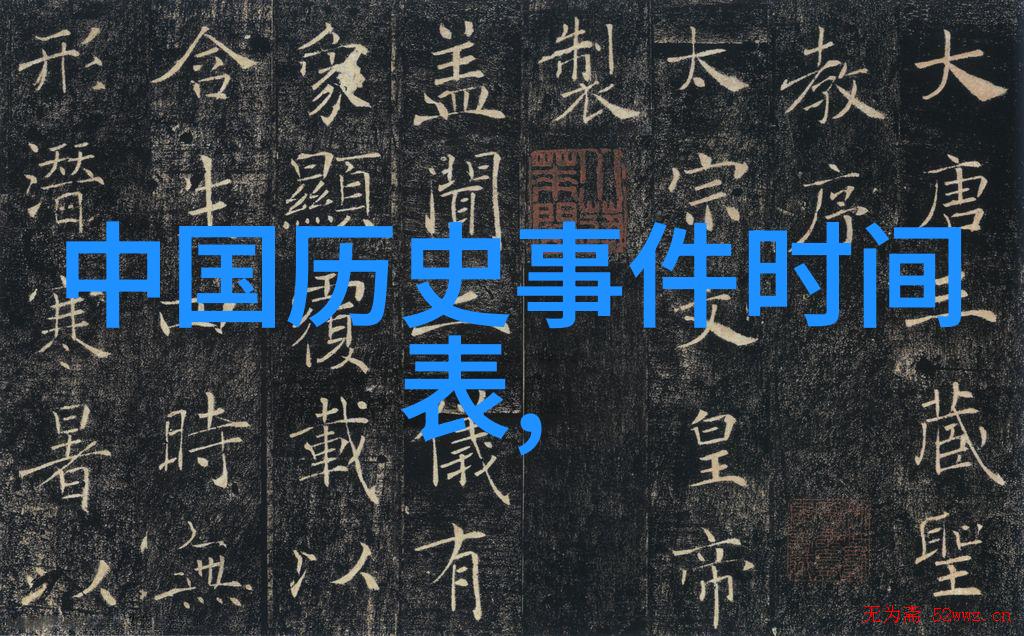 中国历史事件时间
表,
大唐三藏聖
教序
太宗文皇帝
製
盖聞二儀有
象顯覆載以
含生四時無
形潛寒暑以
无为斋 52wwz.cn